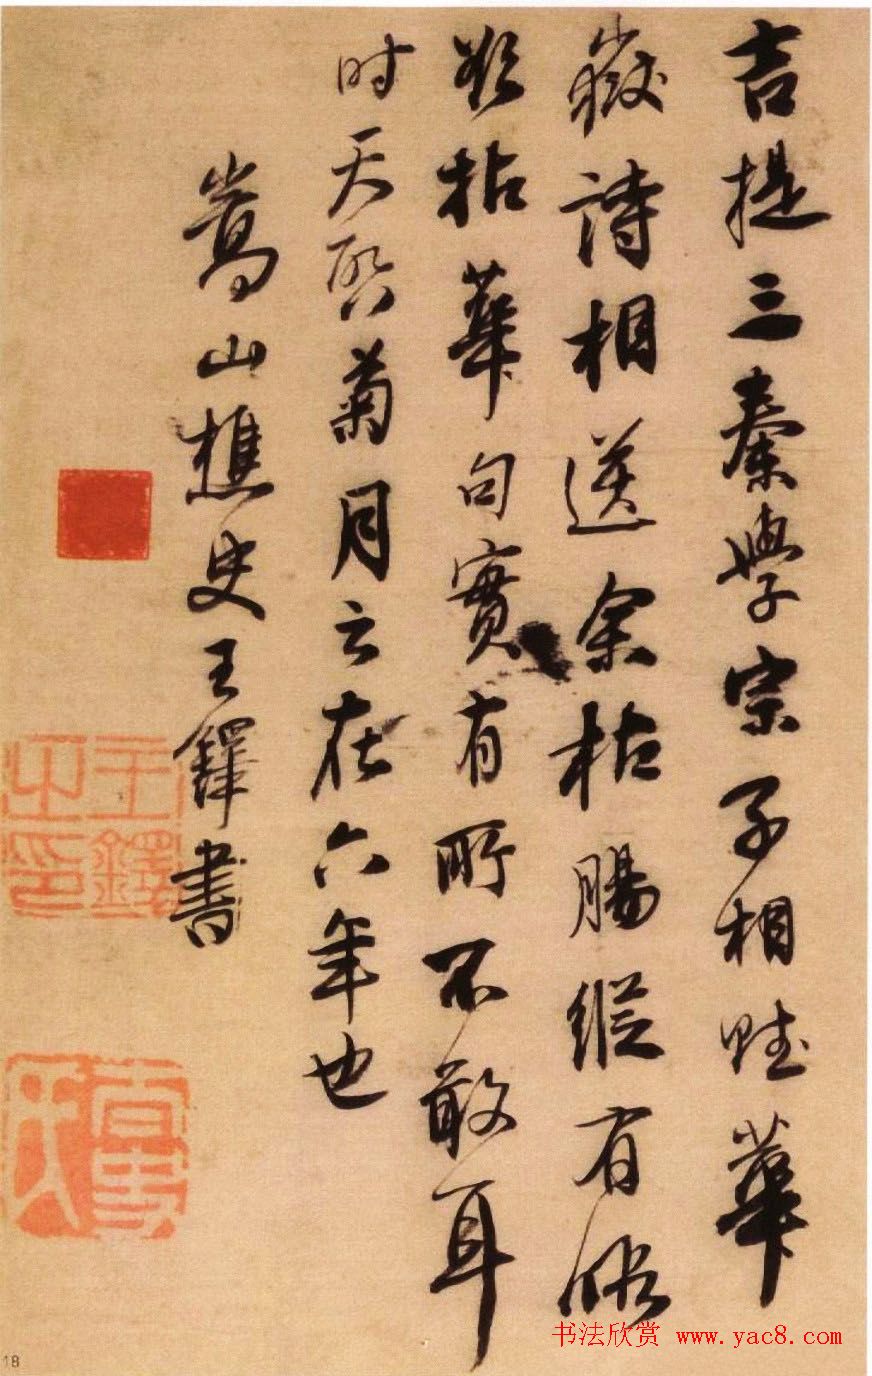 吉提三秦學宗子相賦華
嶽詩相送余枯腸縱有
拈華句實有所不敢耳
时天啓菊月云在六年也
嵩山樵史王鐸書
王鐸之印
书法欣赏 www.yac8.com
18